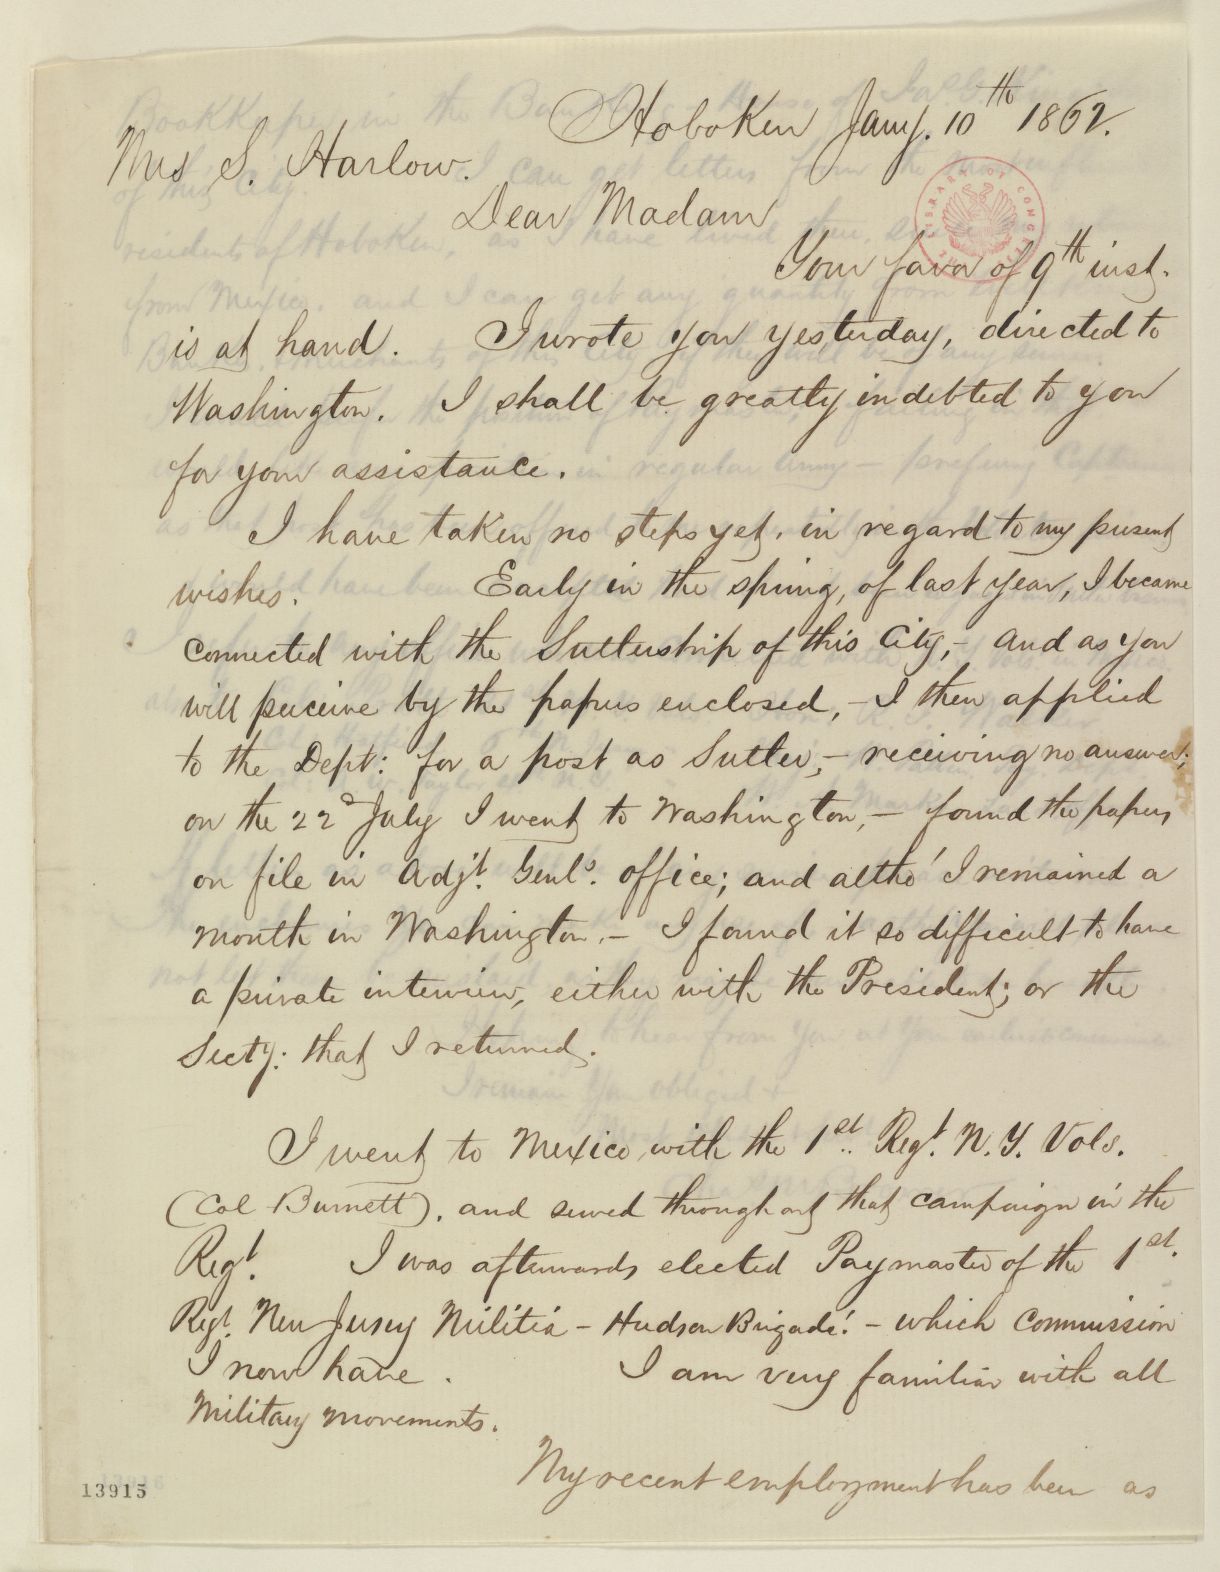 Hoboken Jany. 10th 1862.
Mrs S. Harlow.
Dear Madam
Your favor of 9th inst.
is at hand. I wrote you yesterday, directed to
Washington. I shall be greatly indebted to you
for your assistance.
I have taken no steps yet, in regard to my present
wishes. Early in the spring, of last year, I became
connected with the Sutlership of this City,- and as you
will perceive by the papers enclosed, - I then applied
to the Dept: for a post as Sutler,- receiving no answer;
on the 22d July I went to Washington,- found the papers
on file in Adjt. Genls. office; and altho' I remained a
month in Washington,- I found it so difficult to have
a private interview, either with the President; or the
Secty: that I returned.
I went to Mexico with the 1st. Regt. N. Y. Vols.
(Col Burnett), and served throughout that campaign in the
Regt. I was afterwards elected Paymaster of the 1st.
Regt. New Jersey Militia - Hudson Brigade! - which commission
I now have. I am very familiar with all
Military movements.
My recent employment has been as
13915
LIBRARY OF CONGRESS